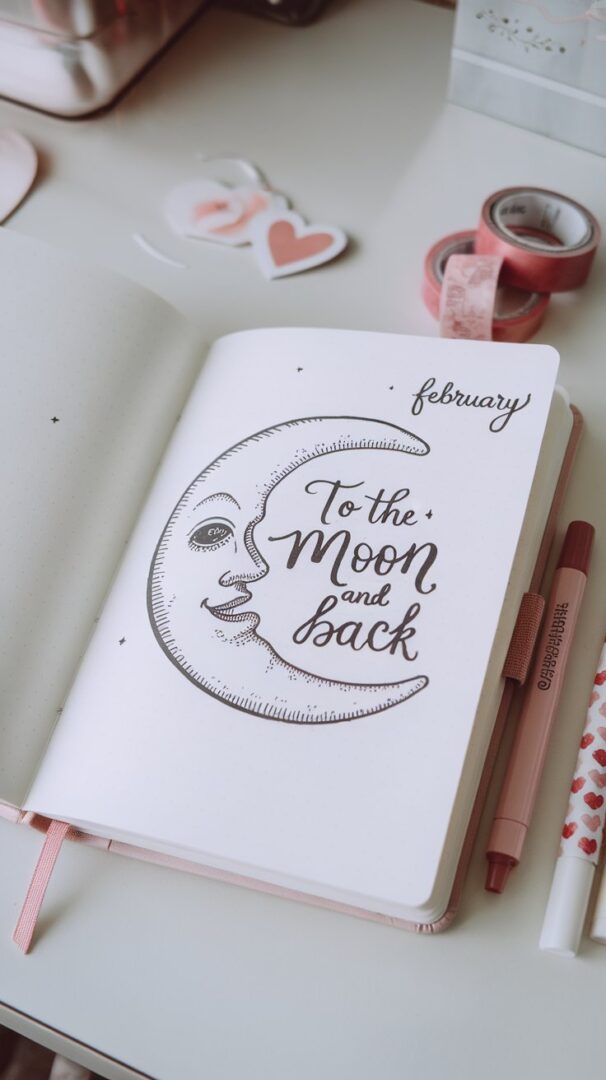 february
To the
Moon
and
back